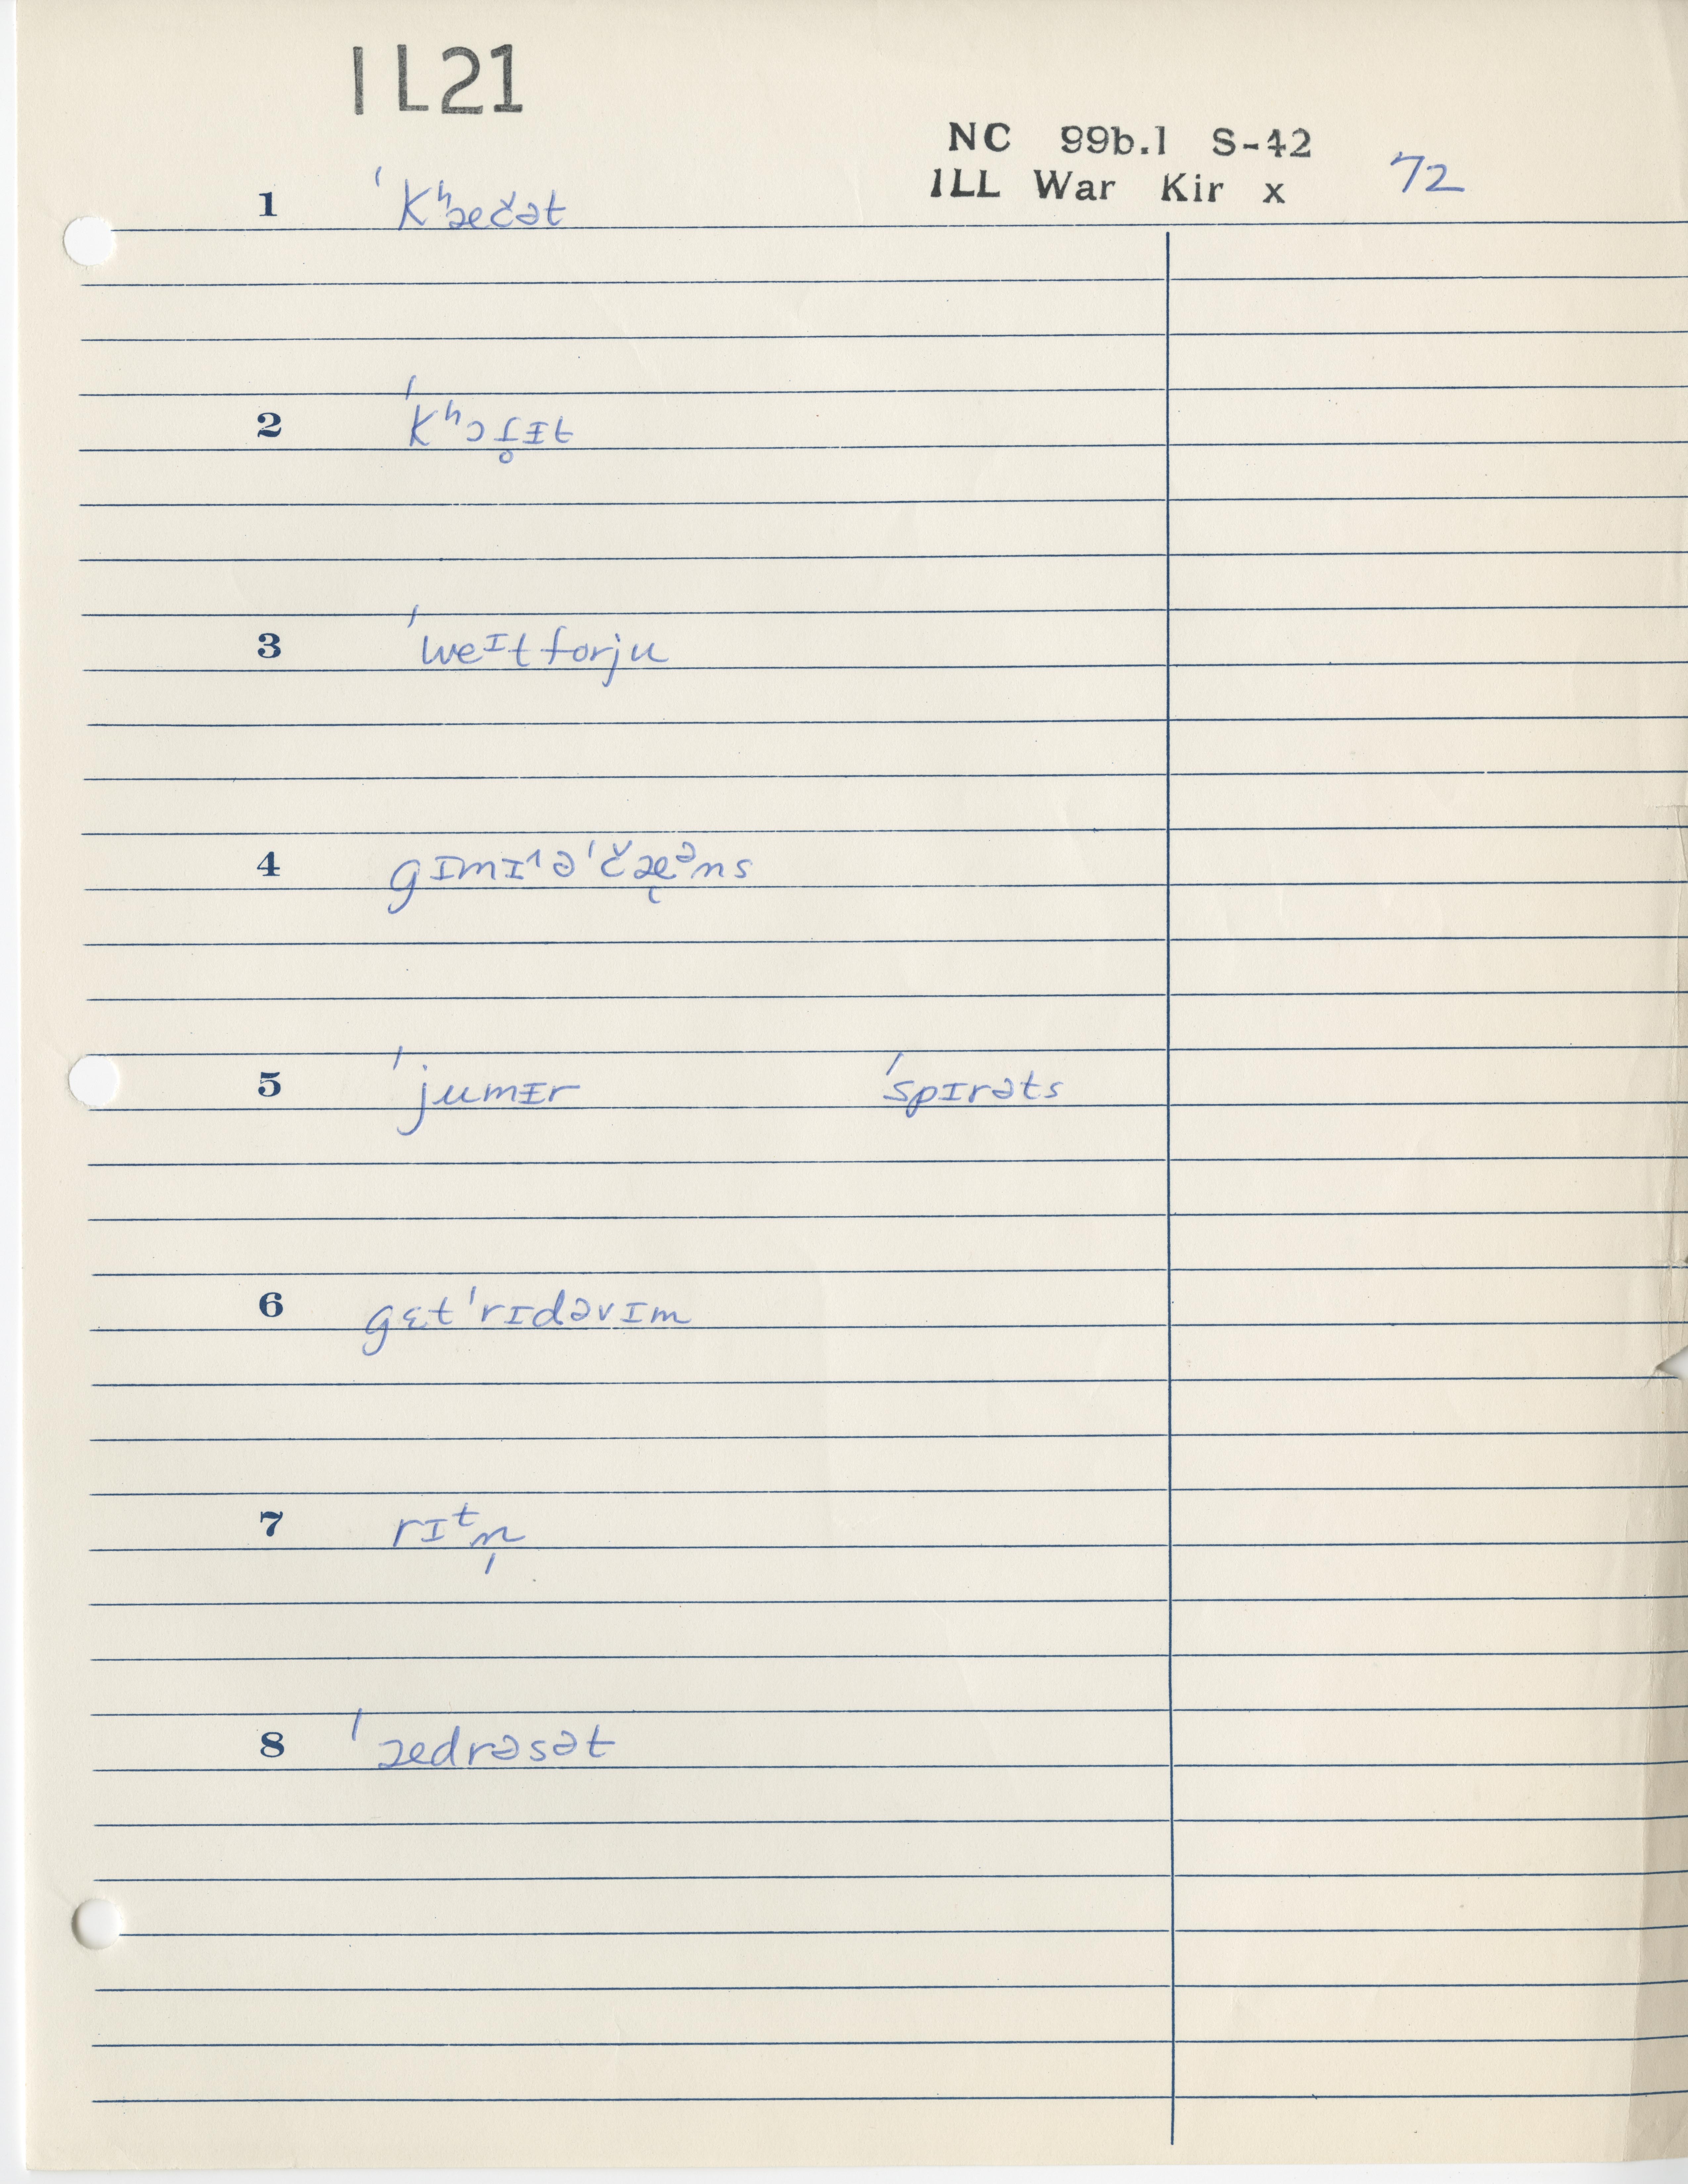 IL21
NC 99b.1 S-42
ILL War Kir x 72
1 ˈKʰæčət
2 ˈKʰɔɾ̥ɪt
3 ˈweᶦtforju
4 gɪmɪ˄ əˈčæ̨ᵊns
5 ˈjumɪr ˈspɪrəts
6 gɛtˈrɪdəvɪm
7 rɪᵗn̩
8 ˈædrəsət